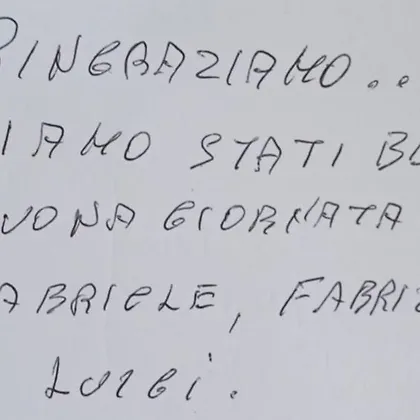 RINGRAZIAMO..
IAMO STATI BE
UONA GIORNATA
ABRIELE, FABRIZ
LUIGI.